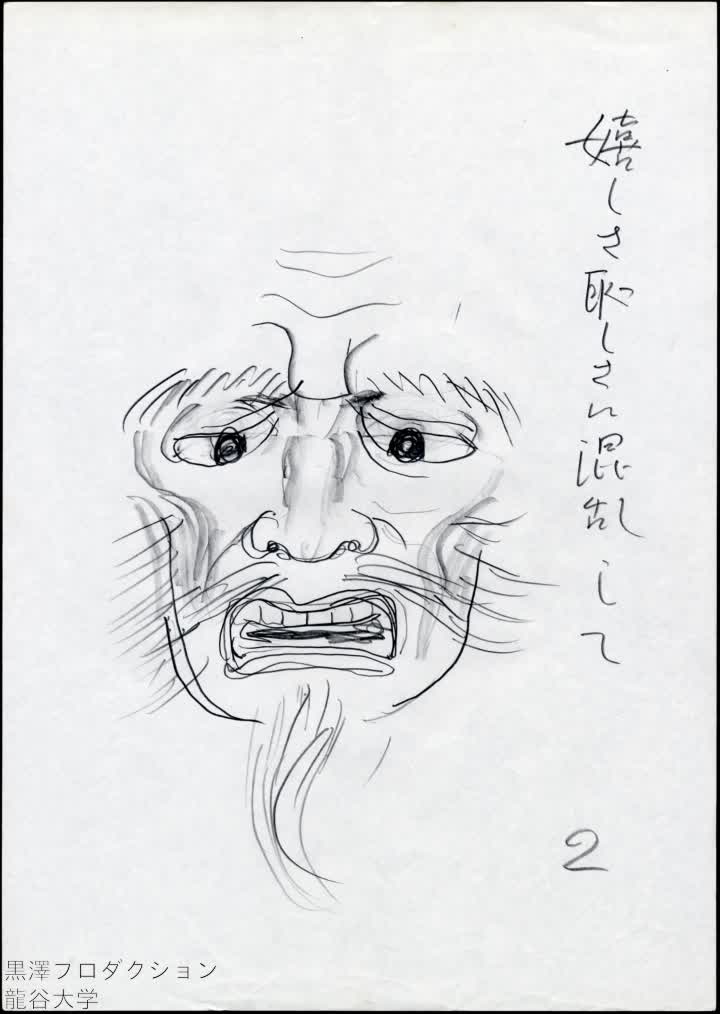 嬉しさ恥しさに混乱して
2
黒澤プロダクション
龍谷大学